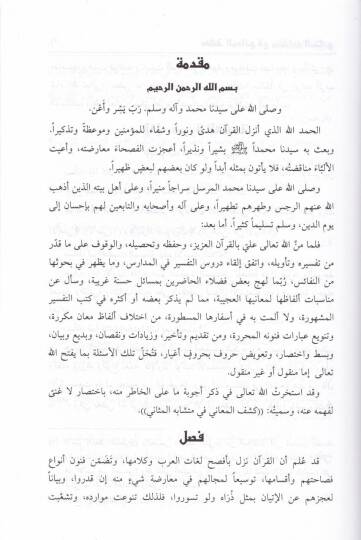 مقدمة
بسم الله الرحمن الرحيم
وصلى الله على سيدنا محمد وآله وسلم، رَبّ يَسّر وأَعِن.
الحمد الله الذي أنزل القرآن هدىً ونوراً وشفاء للمؤمنين وموعظةً وتذكيراً.
وبعث به سيدنا محمداً ﷺ بشيراً ونذيراً، أعجزت الفصحاءَ معارضته، وأعيت
الألبّاءَ مناقضتُه، فلا يأتون بمثله أبداً ولو كان بعضهم لبعضٍ ظهيراً.
وصلى الله على سيدنا محمد المرسل سراجاً منيراً، وعلى أهل بيته الذين أذهب
الله عنهم الرجس وطهرهم تطهيراً، وعلى آله وأصحابه والتابعين لهم بإحسان إلى
يوم الدين، وسلم تسليماً كثيراً. أما بعد:
فلما منَّ الله تعالى عليَّ بالقرآن العزيز، وحفظه وتحصيله، والوقوف على ما قدّر
من تفسيره وتأويله، واتفق إلقاء دروس التفسير في المدارس، وما يظهر في بحوثها
من النفائس، رُبّما لهج بعض فضلاء الحاضرين بمسائل حسنة غريبة، وسأل عن
مناسبات ألفاظها لمعانيها العجيبة، مما لم يذكر بعضه أو أكثره في كتب التفسير
المشهورة، ولا ألمت به في أسفارها المسطورة، من اختلاف ألفاظ معان مكررة،
وتنويع عبارات فنونه المحررة، ومن تقديم وتأخير، وزيادات ونقصان، وبديع وبيان،
وبسط واختصار، وتعويض حروف بحروفِ أغيار، فتُحَلّ تلك الأسئلة بما يفتح الله
تعالى إما منقول أو غير منقول.
وقد استخرتُ الله تعالى في ذكر أجوبة ما على الخاطر منه، باختصار لا غنىً
لفهمه عنه، وسميتُه: ((كشف المعاني في متشابه المثاني)).
فصل
قد عُلم أن القرآن نزل بأفصح لغات العرب وكلامها، وتَضَمّن فنون أنواع
فصاحتهم وأقسامها، توسيعاً لمجالهم في معارضة شيءٍ منه إن قدروا، وبياناً
لعجزهم عن الإتيان بمثل ذُرَاه ولو تسوروا، فلذلك تنوعت موارده، وتشعّبت